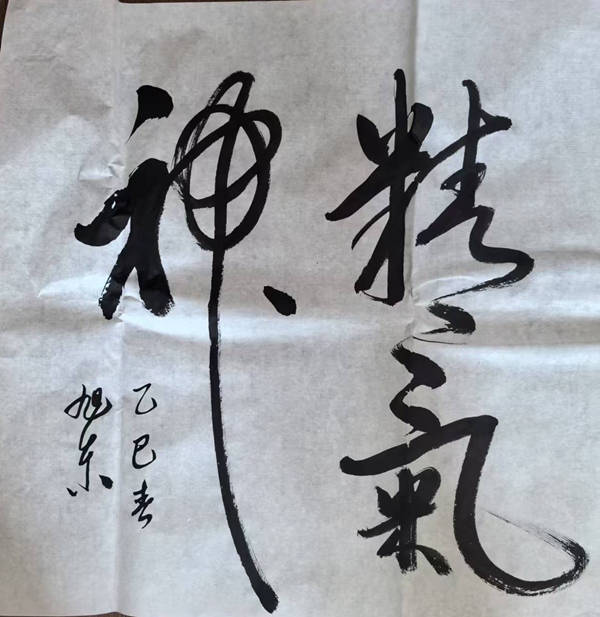 精氣
神
乙巳春
旭东